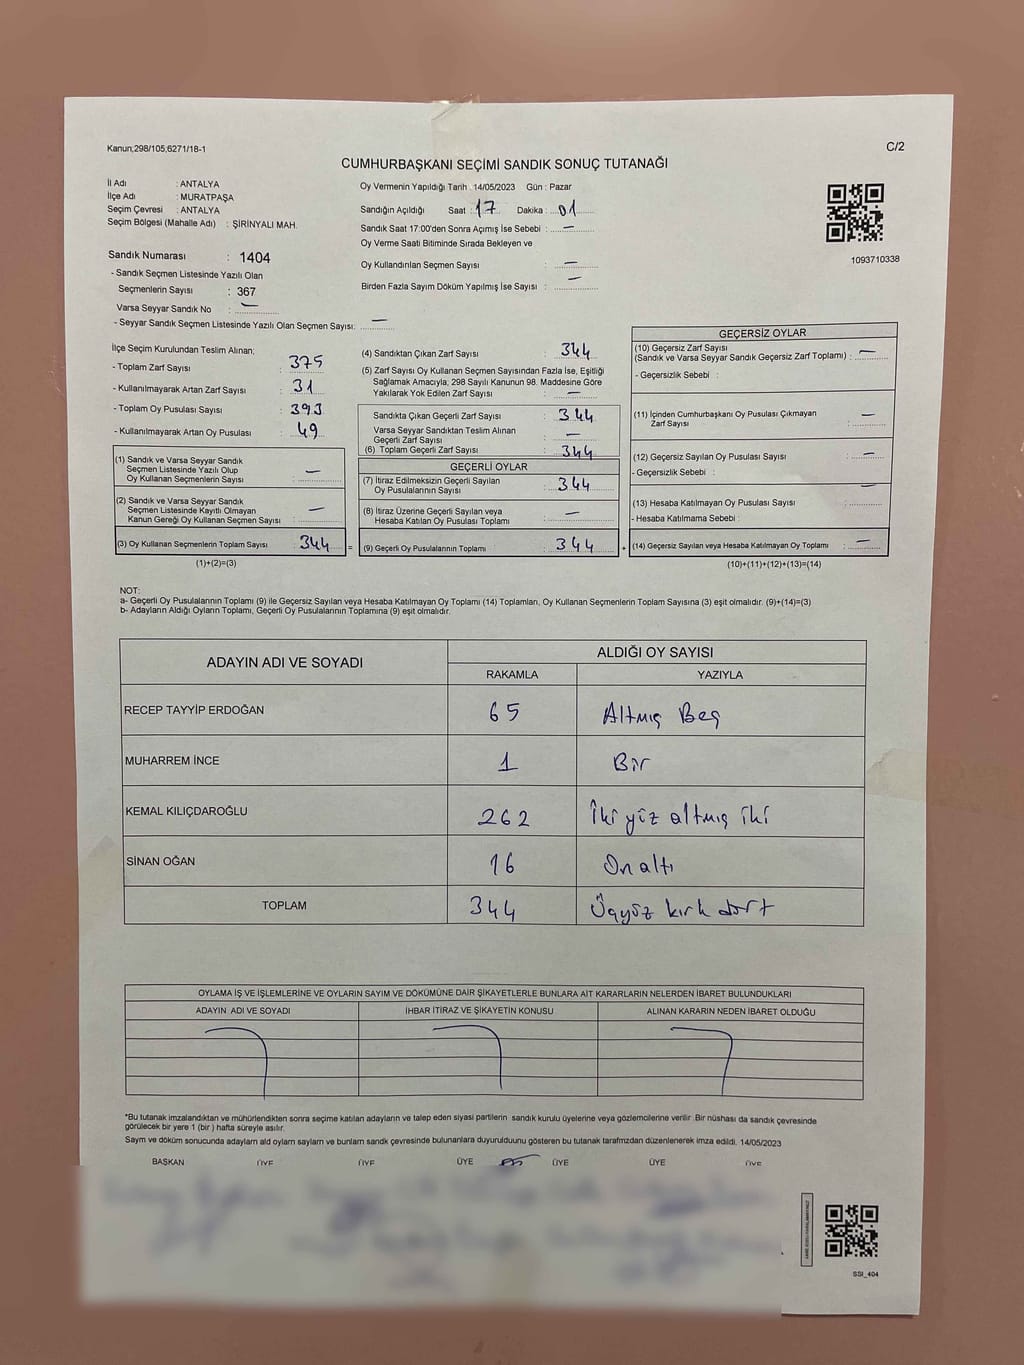 Kanun;298/105,6271/18-1
C/2
CUMHURBAŞKANI SEÇİMİ SANDIK SONUÇ TUTANAĞI
İl Adı : ANTALYA
İlçe Adı : MURATPAŞA
Seçim Çevresi : ANTALYA
Seçim Bölgesi (Mahalle Adı) : ŞİRİNYALI MAH.
Sandık Numarası : 1404
- Sandık Seçmen Listesinde Yazılı Olan
Seçmenlerin Sayısı : 367
Varsa Seyyar Sandık No : —
- Seyyar Sandık Seçmen Listesinde Yazılı Olan Seçmen Sayısı: —
Oy Vermenin Yapıldığı Tarih : 14/05/2023 Gün : Pazar
Sandığın Açıldığı Saat : 17 Dakika : 01
Sandık Saat 17:00'den Sonra Açımış İse Sebebi : —
Oy Verme Saati Bitiminde Sırada Bekleyen ve
Oy Kullandırılan Seçmen Sayısı : —
Birden Fazla Sayım Döküm Yapılmış İse Sayısı : —
1093710338
İlçe Seçim Kurulundan Teslim Alınan;
- Toplam Zarf Sayısı : 375
- Kullanılmayarak Artan Zarf Sayısı : 31
- Toplam Oy Pusulası Sayısı : 393
- Kullanılmayarak Artan Oy Pusulası : 49
(1) Sandık ve Varsa Seyyar Sandık
Seçmen Listesinde Yazılı Olup
Oy Kullanan Seçmenlerin Sayısı : —
(2) Sandık ve Varsa Seyyar Sandık
Seçmen Listesinde Kayıtlı Olmayan
Kanun Gereği Oy Kullanan Seçmen Sayısı : —
(3) Oy Kullanan Seçmenlerin Toplam Sayısı : 344 =
(1)+(2)=(3)
(4) Sandıktan Çıkan Zarf Sayısı : 344
(5) Zarf Sayısı Oy Kullanan Seçmen Sayısından Fazla İse, Eşitliği
Sağlamak Amacıyla; 298 Sayılı Kanunun 98. Maddesine Göre
Yakılarak Yok Edilen Zarf Sayısı : —
Sandıkta Çıkan Geçerli Zarf Sayısı : 344
Varsa Seyyar Sandıktan Teslim Alınan
Geçerli Zarf Sayısı : —
(6) Toplam Geçerli Zarf Sayısı : 344
GEÇERLİ OYLAR
(7) İtiraz Edilmeksizin Geçerli Sayılan
Oy Pusulalarının Sayısı : 344
(8) İtiraz Üzerine Geçerli Sayılan veya
Hesaba Katılan Oy Pusulası Toplamı : —
(9) Geçerli Oy Pusulalarının Toplamı : 344 +
GEÇERSİZ OYLAR
(10) Geçersiz Zarf Sayısı
(Sandık ve Varsa Seyyar Sandık Geçersiz Zarf Toplamı) : —
- Geçersizlik Sebebi :
(11) İçinden Cumhurbaşkanı Oy Pusulası Çıkmayan
Zarf Sayısı : —
(12) Geçersiz Sayılan Oy Pusulası Sayısı : —
- Geçersizlik Sebebi :
(13) Hesaba Katılmayan Oy Pusulası Sayısı : —
- Hesaba Katılmama Sebebi :
(14) Geçersiz Sayılan veya Hesaba Katılmayan Oy Toplamı : —
(10)+(11)+(12)+(13)=(14)
NOT:
a- Geçerli Oy Pusulalarının Toplamı (9) ile Geçersiz Sayılan veya Hesaba Katılmayan Oy Toplamı (14) Toplamları, Oy Kullanan Seçmenlerin Toplam Sayısına (3) eşit olmalıdır. (9)+(14)=(3)
b- Adayların Aldığı Oyların Toplamı, Geçerli Oy Pusulalarının Toplamına (9) eşit olmalıdır.
ADAYIN ADI VE SOYADI
ALDIĞI OY SAYISI
RAKAMLA YAZIYLA
RECEP TAYYİP ERDOĞAN 65 Altmış Beş
MUHARREM İNCE 1 Bir
KEMAL KILIÇDAROĞLU 262 İki yüz altmış iki
SİNAN OĞAN 16 On altı
TOPLAM 344 Üçyüz kırk dört
OYLAMA İŞ VE İŞLEMLERİNE VE OYLARIN SAYIM VE DÖKÜMÜNE DAİR ŞİKAYETLERLE BUNLARA AİT KARARLARIN NELERDEN İBARET BULUNDUKLARI
ADAYIN ADI VE SOYADI İHBAR İTİRAZ VE ŞİKAYETİN KONUSU ALINAN KARARIN NEDEN İBARET OLDUĞU
*Bu tutanak imzalandıktan ve mühürlendikten sonra seçime katılan adayların ve talep eden siyasi partilerin sandık kurulu üyelerine veya gözlemcilerine verilir .Bir nüshası da sandık çevresinde
görülecek bir yere 1 (bir ) hafta süreyle asılır.
Saym ve döküm sonucunda adaylarn ald oylarn saylarn ve bunlarn sandk çevresinde bulunanlara duyurulduunu gösteren bu tutanak tarafmzdan düzenlenerek imza edildi. 14/05/2023
BAŞKAN ÜYE ÜYE ÜYE ÜYE ÜYE ÜYE
SSI_404